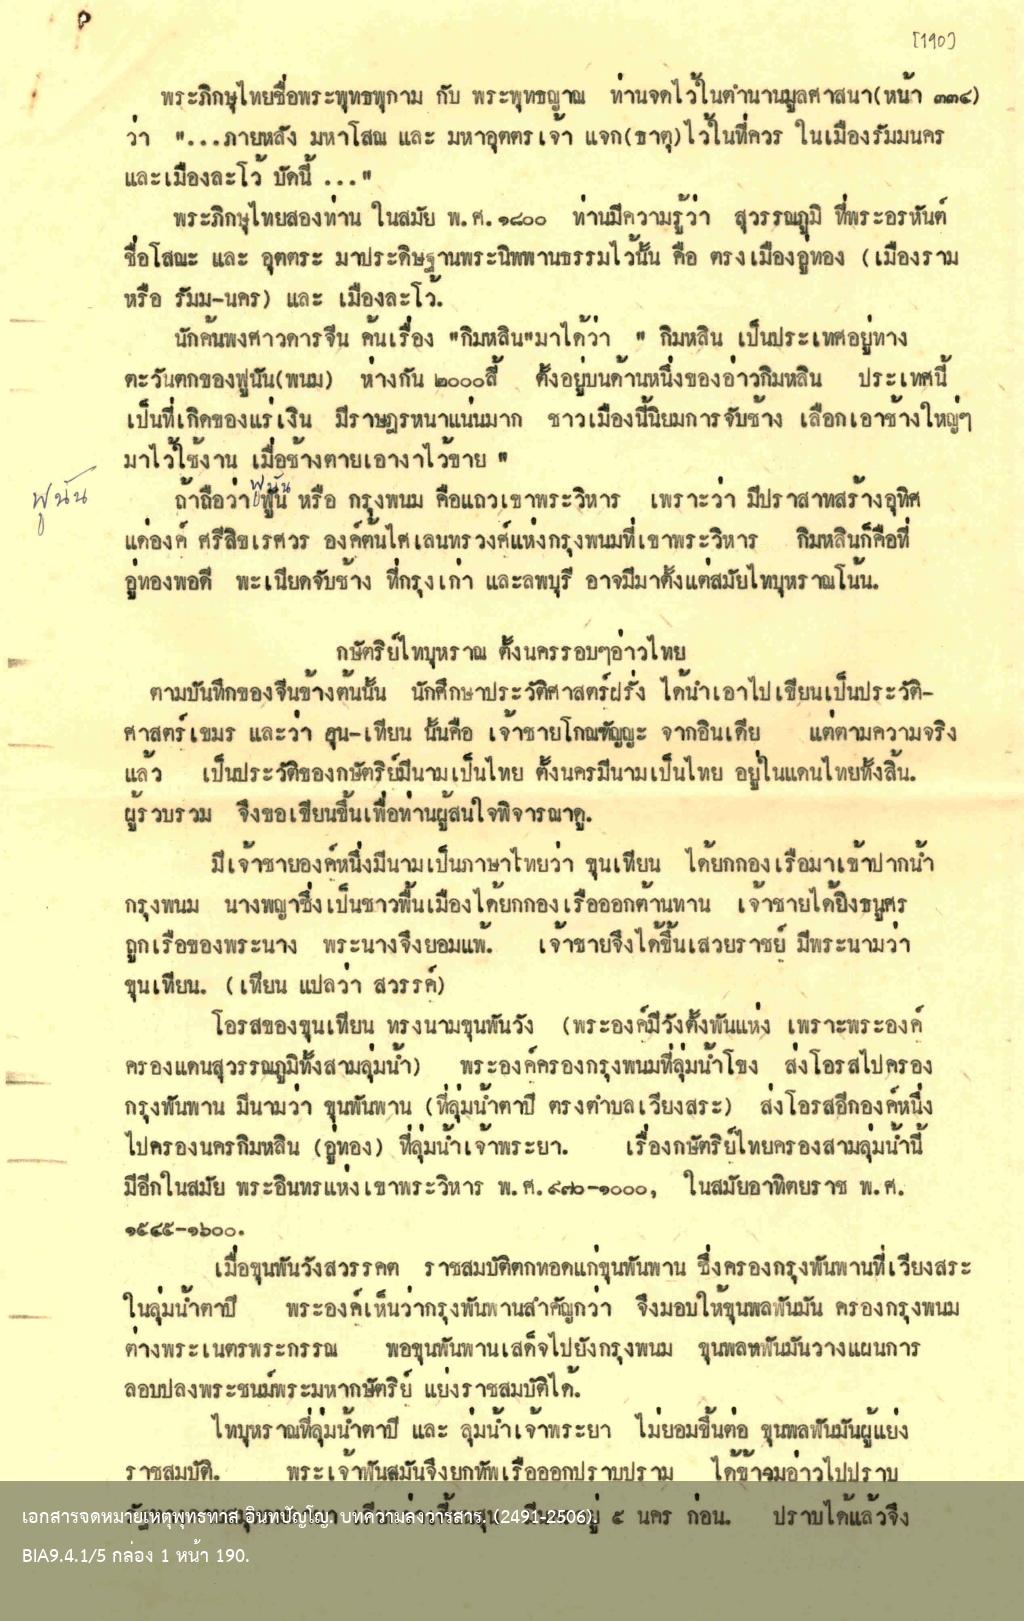 [190]
พระภิกษุไทยชื่อพระพุทธพุกาม กับ พระพุทธญาณ ท่านจดไว้ในตำนานมูลศาสนา(หน้า ๓๓๔)
ว่า "...ภายหลัง มหาโสณ และ มหาอุตตรเจ้า แจก(ธาตุ)ไว้ในที่ควร ในเมืองรัมมนคร
และเมืองละโว้ บัดนี้ ..."
พระภิกษุไทยสองท่าน ในสมัย พ.ศ.๑๘๐๐ ท่านมีความรู้ว่า สุวรรณภูมิ ที่พระอรหันต์
ชื่อโสณะ และ อุตตระ มาประดิษฐานพระนิพพานธรรมไว้นั้น คือ ตรงเมืองอู่ทอง (เมืองราม
หรือ รัมม-นคร) และ เมืองละโว้.
นักค้นพงศาวดารจีน ค้นเรื่อง "กิมหลิน"มาได้ว่า " กิมหลิน เป็นประเทศอยู่ทาง
ตะวันตกของฟูนัน(พนม) ห่างกัน ๒๐๐๐ลี้ ตั้งอยู่บนด้านหนึ่งของอ่าวกิมหลิน ประเทศนี้
เป็นที่เกิดของแร่เงิน มีราษฎรหนาแน่นมาก ชาวเมืองนี้นิยมการจับช้าง เลือกเอาช้างใหญ่ๆ
มาไว้ใช้งาน เมื่อช้างตายเอางาไว้ขาย "
ฟูนัน
ฟูนัน
ถ้าถือว่า ฟูนัน หรือ กรุงพนม คือแถวเขาพระวิหาร เพราะว่า มีปราสาทสร้างอุทิศ
แด่องค์ ศรีสิขเรศวร องค์ต้นไศเลนทรวงศ์แห่งกรุงพนมที่เขาพระวิหาร กิมหลินก็คือที่
อู่ทองพอดี พะเนียดจับช้าง ที่กรุงเก่า และลพบุรี อาจมีมาตั้งแต่สมัยไทบุหราณโน้น.
กษัตริย์ไทบุหราณ ตั้งนครรอบๆอ่าวไทย
ตามบันทึกของจีนข้างต้นนั้น นักศึกษาประวัติศาสตร์ฝรั่ง ได้นำเอาไปเขียนเป็นประวัติ-
ศาสตร์เขมร และว่า ฮุน-เทียน นั้นคือ เจ้าชายโกณฑัญญะ จากอินเดีย แต่ตามความจริง
แล้ว เป็นประวัติของกษัตริย์มีนามเป็นไทย ตั้งนครมีนามเป็นไทย อยู่ในแดนไทยทั้งสิ้น.
ผู้รวบรวม จึงขอเขียนขึ้นเพื่อท่านผู้สนใจพิจารณาดู.
มีเจ้าชายองค์หนึ่งมีนามเป็นภาษาไทยว่า ขุนเทียน ได้ยกกองเรือมาเข้าปากน้ำ
กรุงพนม นางพญาซึ่งเป็นชาวพื้นเมืองได้ยกกองเรือออกต้านทาน เจ้าชายได้ยิงธนูศร
ถูกเรือของพระนาง พระนางจึงยอมแพ้. เจ้าชายจึงได้ขึ้นเสวยราชย์ มีพระนามว่า
ขุนเทียน. (เทียน แปลว่า สวรรค์)
โอรสของขุนเทียน ทรงนามขุนพันวัง (พระองค์มีวังตั้งพันแห่ง เพราะพระองค์
ครองแดนสุวรรณภูมิทั้งสามลุ่มน้ำ) พระองค์ครองกรุงพนมที่ลุ่มน้ำโขง ส่งโอรสไปครอง
กรุงพันพาน มีนามว่า ขุนพันพาน (ที่ลุ่มน้ำตาปี ตรงตำบลเวียงสระ) ส่งโอรสอีกองค์หนึ่ง
ไปครองนครกิมหลิน (อู่ทอง) ที่ลุ่มน้ำเจ้าพระยา. เรื่องกษัตริย์ไทยครองสามลุ่มน้ำนี้
มีอีกในสมัย พระอินทรแห่งเขาพระวิหาร พ.ศ.๙๗๐-๑๐๐๐, ในสมัยอาทิตยราช พ.ศ.
๑๕๔๕-๑๖๐๐.
เมื่อขุนพันวังสวรรคต ราชสมบัติตกทอดแก่ขุนพันพาน ซึ่งครองกรุงพันพานที่เวียงสระ
ในลุ่มน้ำตาปี พระองค์เห็นว่ากรุงพันพานสำคัญกว่า จึงมอบให้ขุนพลพันมัน ครองกรุงพนม
ต่างพระเนตรพระกรรณ พอขุนพันพานเสด็จไปยังกรุงพนม ขุนพลพันมันวางแผนการ
ลอบปลงพระชนม์พระมหากษัตริย์ แย่งราชสมบัติได้.
ไทบุหราณที่ลุ่มน้ำตาปี และ ลุ่มน้ำเจ้าพระยา ไม่ยอมขึ้นต่อ ขุนพลพันมันผู้แย่ง
ราชสมบัติ. พระเจ้าพันสมันจึงยกทัพเรือออกปราบปราม ได้ข้ามอ่าวไปปราบ
อยู่ ๕ นคร ก่อน. ปราบได้แล้วจึง
เอกสารจดหมายเหตุพุทธทาส อินทปัญโญ. บทความลงวารสาร. (2491-2506).
BIA9.4.1/5 กล่อง 1 หน้า 190.